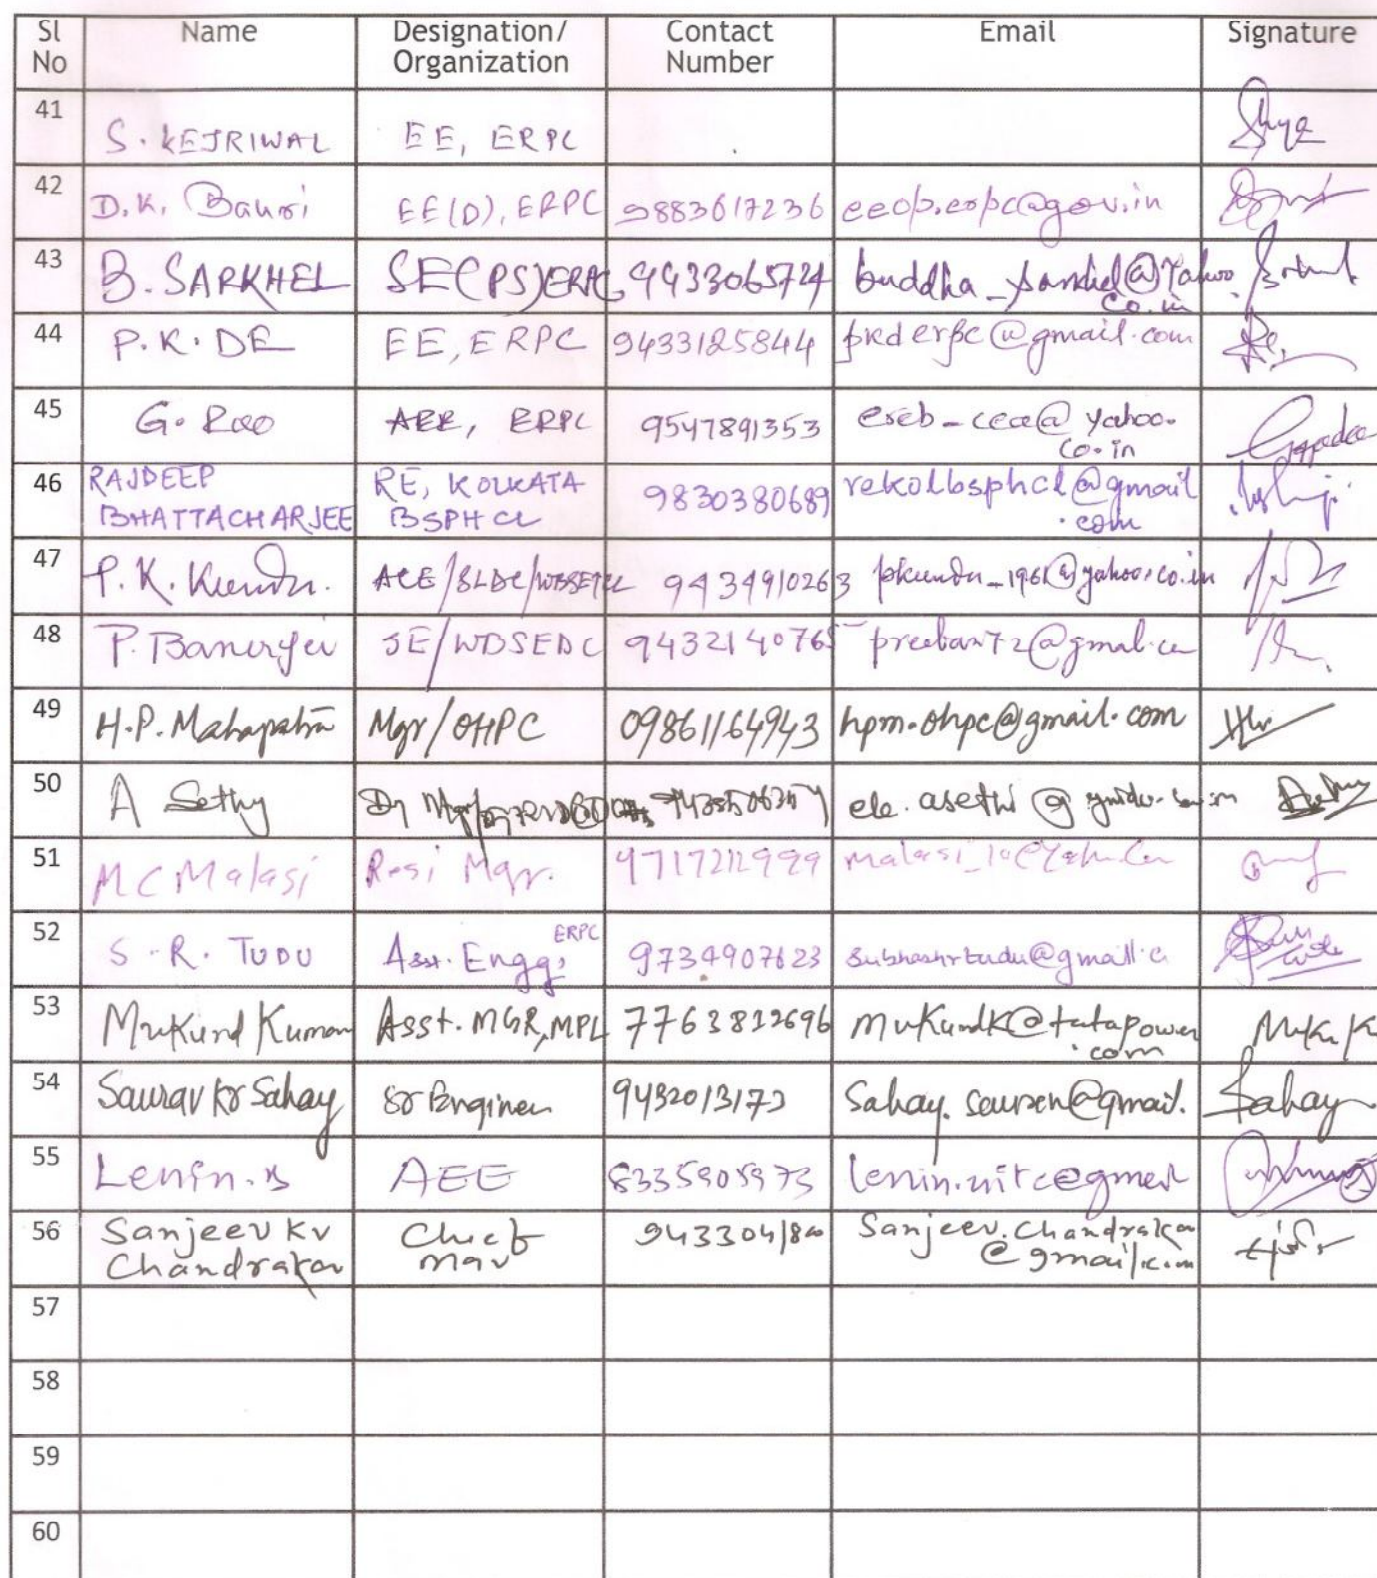 Sl No Name Designation/ Organization Contact Number Email Signature
41 S. KEJRIWAL EE, ERPC
42 D.K. Bauri EE(O), ERPC 9883617236 eeop.erpc@gov.in
43 B. SARKHEL SE(PS)ERPC, 9433065724 buddha_sarkhel@Yahoo.co.in
44 P.K. DE EE, ERPC 9433125844 pkderpc@gmail.com
45 G. Rao AEE, ERPC 9547891353 ereb_cea@yahoo.co.in
46 RAJDEEP BHATTACHARJEE RE, KOLKATA BSPHCL 9830380689 rekolbsphcl@gmail.com
47 P.K. Kundu. ACE/SLDC/WBSETCL 9434910263 pkundu_1961@yahoo.co.in
48 P. Banerjee SE/WBSEDC 9432140765
49 H.P. Mahapatra Mgr/OHPC 09861164943 hpm.ohpc@gmail.com
50 A Sethy Dy Mgr
51 MC Malasi 9717211999
52 S.R. TUDU Asst. Engg, ERPC 9734907623
53 Mukund Kumar Asst. MGR, MPL 7763812696 mukundk@tatapower.com
54 Saurav Kr Sahay Sr Engineer 9432013173 Sahay
55 Lenin.B AEE 8335905973 lenin.nitc@gmail
56 Sanjeev Kr Chandrakar Chief Mgr Sanjeev.Chandrakar@gmail.com
57
58
59
60